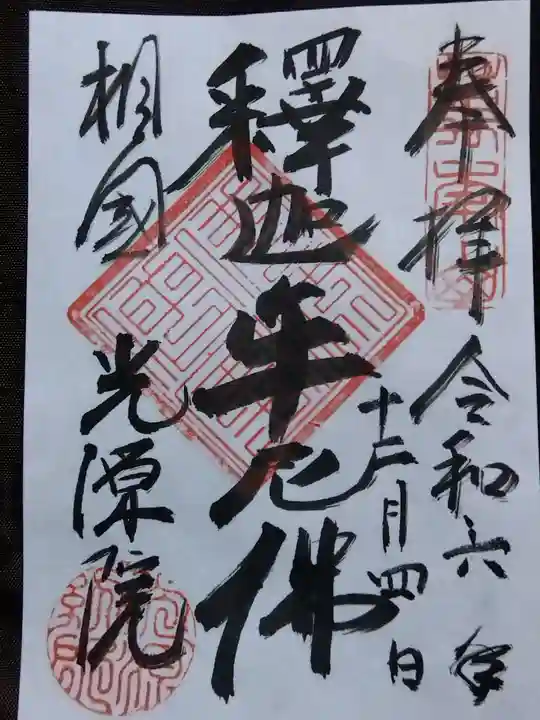 奉拝
令和六年
十二月四日
釋迦牟尼佛
相國
光源院